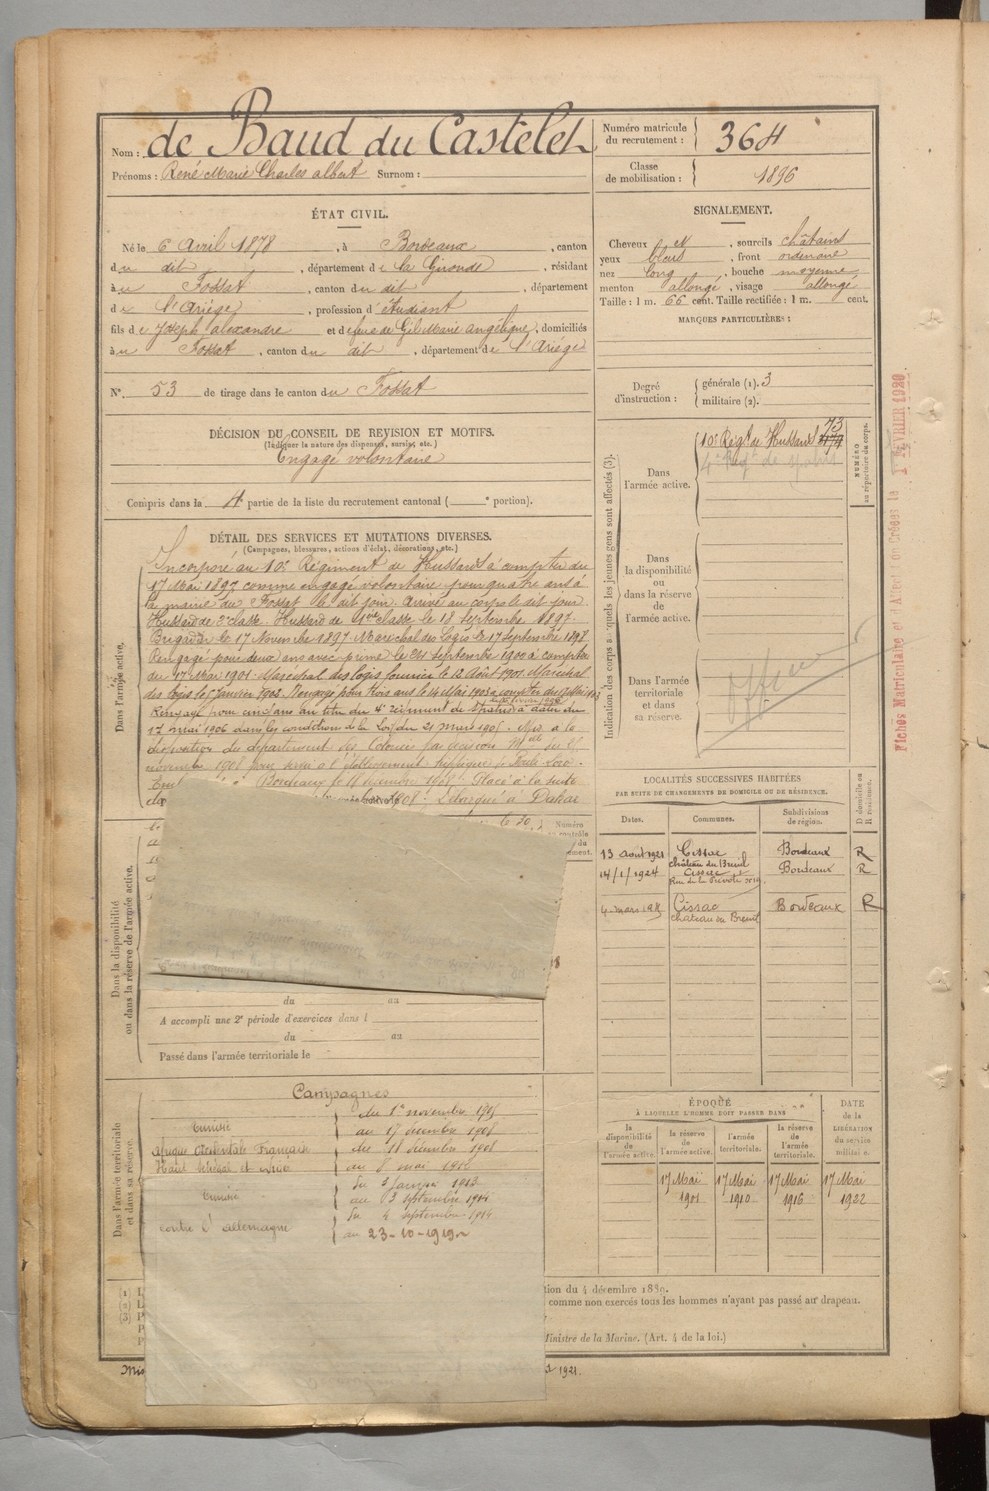 Nom : de Baud du Castelet
Prénoms : René Marie Charles albert Surnom :
Numéro matricule du recrutement : 364
Classe de mobilisation : 1896
ÉTAT CIVIL.
Né le 6 Avril 1878, à Bordeaux, canton
du dit, département de la Gironde, résidant
à u Fossat, canton du dit, département
de l'Ariège, profession d'étudiant
fils de Joseph alexandre et de feue de Gil Marie angélique, domiciliés
à u Fossat, canton du dit, département de l'Ariège
N° 53 de tirage dans le canton du Fossat
DÉCISION DU CONSEIL DE REVISION ET MOTIFS.
(Indiquer la nature des dispenses, sursis, etc.)
Engagé volontaire
Compris dans la 4 partie de la liste du recrutement cantonal ( ° portion).
SIGNALEMENT.
Cheveux , sourcils châtains
yeux bleus, front ordinaire
nez long, bouche moyenne
menton allongé, visage allongé
Taille : 1 m. 66 cent. Taille rectifiée : 1 m. cent.
MARQUES PARTICULIÈRES :
Degré d'instruction : générale (1). 3
militaire (2).
DÉTAIL DES SERVICES ET MUTATIONS DIVERSES.
(Campagnes, blessures, actions d'éclat, décorations, etc.)
Dans l'armée active.
Incorporé au 10e Régiment de Hussards à compter du
17 Mai 1897 comme engagé volontaire pour quatre ans à
la mairie du Fossat le dit jour. Arrivé au corps le dit jour
Hussard de 2e classe. Hussard de 1ère classe le 18 septembre 1897.
Brigadier le 17 Novembre 1897. Marechal des logis le 17 septembre 1898.
Rengagé pour deux ans avec prime le 24 septembre 1900 à compter
du 17 Mai 1901. Maréchal des logis fourrier le 12 Août 1901. Maréchal
des logis le 5 Janvier 1903. Rengagé pour trois ans le 14 Mai 1903 à compter du 17 Mai
Rengagé pour cinq ans au titre du 4e régiment de Spahis à dater du
17 mai 1906 dans les conditions de la Loi du 21 mars 1905. Mis à la
disposition du département des Colonies par décision Mlle du
novembre 1908 pour servir à l'établissement hippique de
Bordeaux le décembre 1908. Placé à la suite
1908. Débarqué à Dakar
Indication des corps auxquels les jeunes gens sont affectés (3).
Dans l'armée active.
10e Régt de Hussards 73
4e Regt de Spahis
NUMÉRO au répertoire du corps.
Dans la disponibilité ou dans la réserve de l'armée active.
Dans l'armée territoriale et dans sa réserve.
Officier
Fiches Matriculaire et d'Affectation Créées le 1 FÉVRIER 1920
LOCALITÉS SUCCESSIVES HABITÉES
PAR SUITE DE CHANGEMENTS DE DOMICILE OU DE RÉSIDENCE.
Dates. Communes. Subdivisions de région. D domicile ou R résidence.
13 août 1921 Cissac château du Breuil Bordeaux R
14/1/1924 Cissac Bordeaux R
4 mars Cissac château du Breuil Bordeaux R
Dans la disponibilité ou dans la réserve de l'armée active.
du au
A accompli une 2e période d'exercices dans l
du au
Passé dans l'armée territoriale le
Dans l'armée territoriale et dans sa réserve.
Campagnes
Tunisie du 1er novembre
au 17 décembre 1908
afrique Occidentale Française du 18 décembre 1908
Haut Sénégal et Niger au 8 mai
Tunisie du 3 Janvier 1913
au 3 septembre 1914
contre l'allemagne du 4 septembre 1914
au 23-10-1919
ÉPOQUE
À LAQUELLE L'HOMME DOIT PASSER DANS
la disponibilité de l'armée active. la réserve de l'armée active. l'armée territoriale. la réserve de l'armée territoriale.
DATE de la LIBÉRATION du service militaire.
17 Mai 1901 17 Mai 1910 17 Mai 1916 17 Mai 1922
tion du 4 décembre 1889.
comme non exercés tous les hommes n'ayant pas passé au drapeau.
Ministre de la Marine. (Art. 4 de la loi.)
1921.